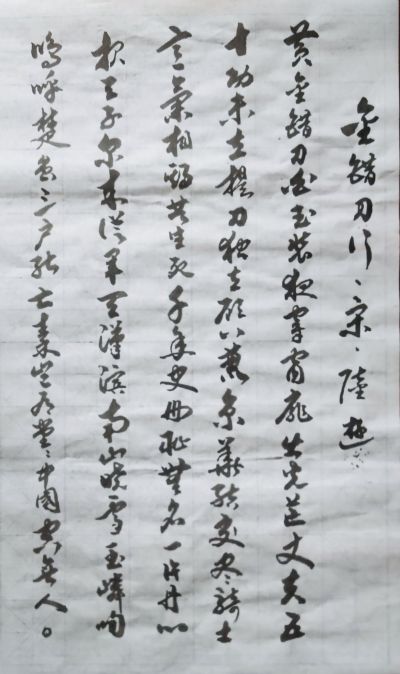 金錯刀行、宋、陸遊
黄金錯刀白玉装夜穿窗扉出光芒丈夫五
十功未立提刀独立顾八荒京華結交尽騎士
意氣相期共生死千年史册耻無名一片丹心
报天子尔来從軍天漢滨南山晓雪玉嶙峋
嗚呼楚虽三户能亡秦豈有堂々中國空無人。